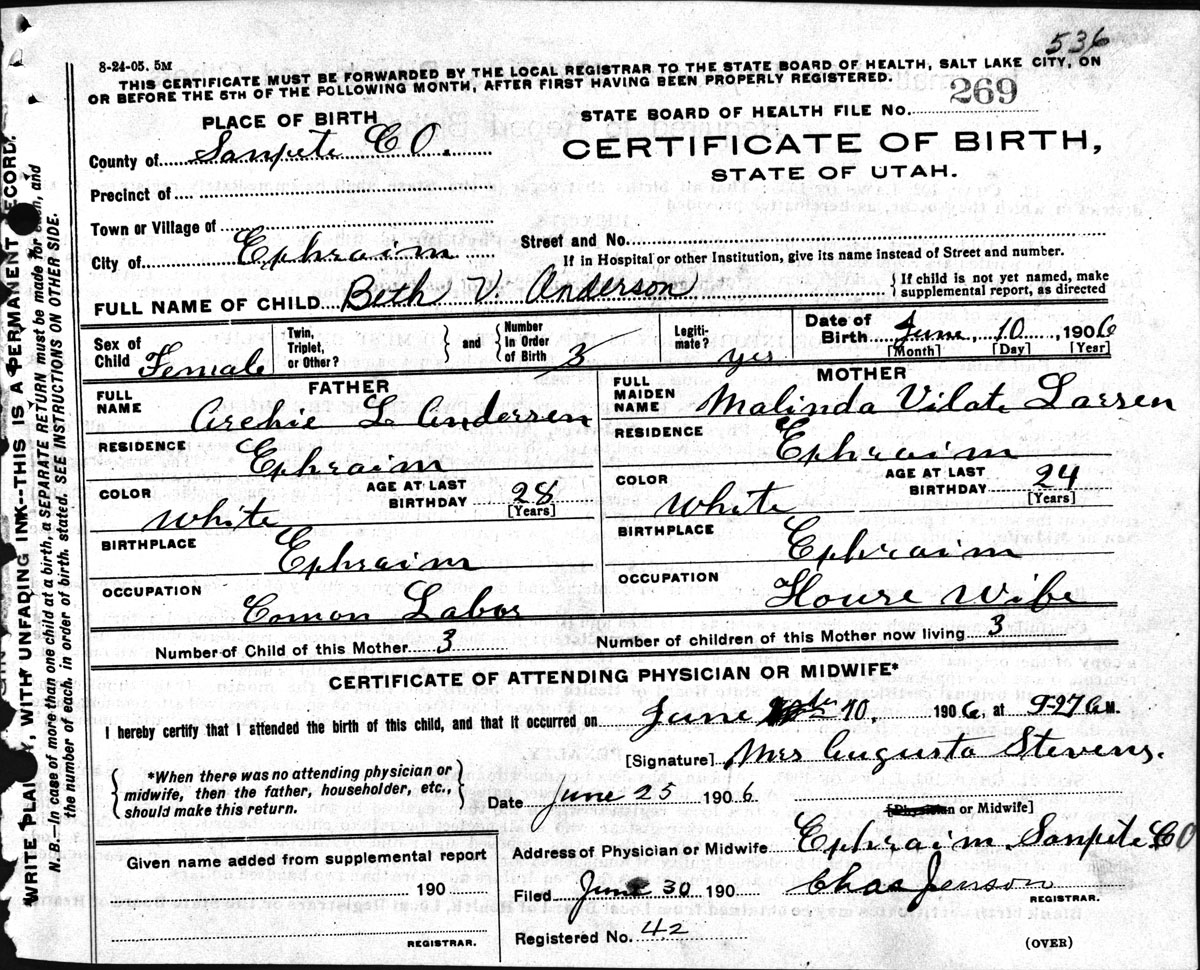 536
8-24-05. 5M
THIS CERTIFICATE MUST BE FORWARDED BY THE LOCAL REGISTRAR TO THE STATE BOARD OF HEALTH, SALT LAKE CITY, ON
OR BEFORE THE 5TH OF THE FOLLOWING MONTH, AFTER FIRST HAVING BEEN PROPERLY REGISTERED.
PLACE OF BIRTH
STATE BOARD OF HEALTH FILE No. 269
County of Sanpete CO.
CERTIFICATE OF BIRTH,
STATE OF UTAH.
Precinct of
Town or Village of
City of Ephraim
Street and No.
If in Hospital or other Institution, give its name instead of Street and number.
FULL NAME OF CHILD Beth V. Anderson
{ If child is not yet named, make
supplemental report, as directed
Sex of Child Female
Twin, Triplet, or Other?
} and {
Number In Order of Birth 3
Legiti-mate? yes
Date of Birth June, 10, 1906
[Month] [Day] [Year]
FATHER
FULL NAME Archie L Andersen
RESIDENCE Ephraim
COLOR White
AGE AT LAST BIRTHDAY 28
[Years]
BIRTHPLACE Ephraim
OCCUPATION Comon Labor
MOTHER
FULL MAIDEN NAME Malinda Vilate Larsen
RESIDENCE Ephraim
COLOR White
AGE AT LAST BIRTHDAY 24
[Years]
BIRTHPLACE Ephraim
OCCUPATION House Wife
Number of Child of this Mother 3
Number of children of this Mother now living 3
CERTIFICATE OF ATTENDING PHYSICIAN OR MIDWIFE*
I hereby certify that I attended the birth of this child, and that it occurred on June 10, 1906, at 9-27 a M.
[Signature] Mrs Augusta Stevens.
{ *When there was no attending physician or
midwife, then the father, householder, etc.,
should make this return. }
Date June 25 1906
[Physician or Midwife]
Given name added from supplemental report
190
REGISTRAR.
Address of Physician or Midwife Ephraim Sanpete CO
Filed June 30 190 Chas Jenson
REGISTRAR.
Registered No. 42
(OVER)
WRITE PLAINLY, WITH UNFADING INK--THIS IS A PERMANENT RECORD.
N. B.—In case of more than one child at a birth, a SEPARATE RETURN must be made for each, and
the number of each, in order of birth, stated. SEE INSTRUCTIONS ON OTHER SIDE.